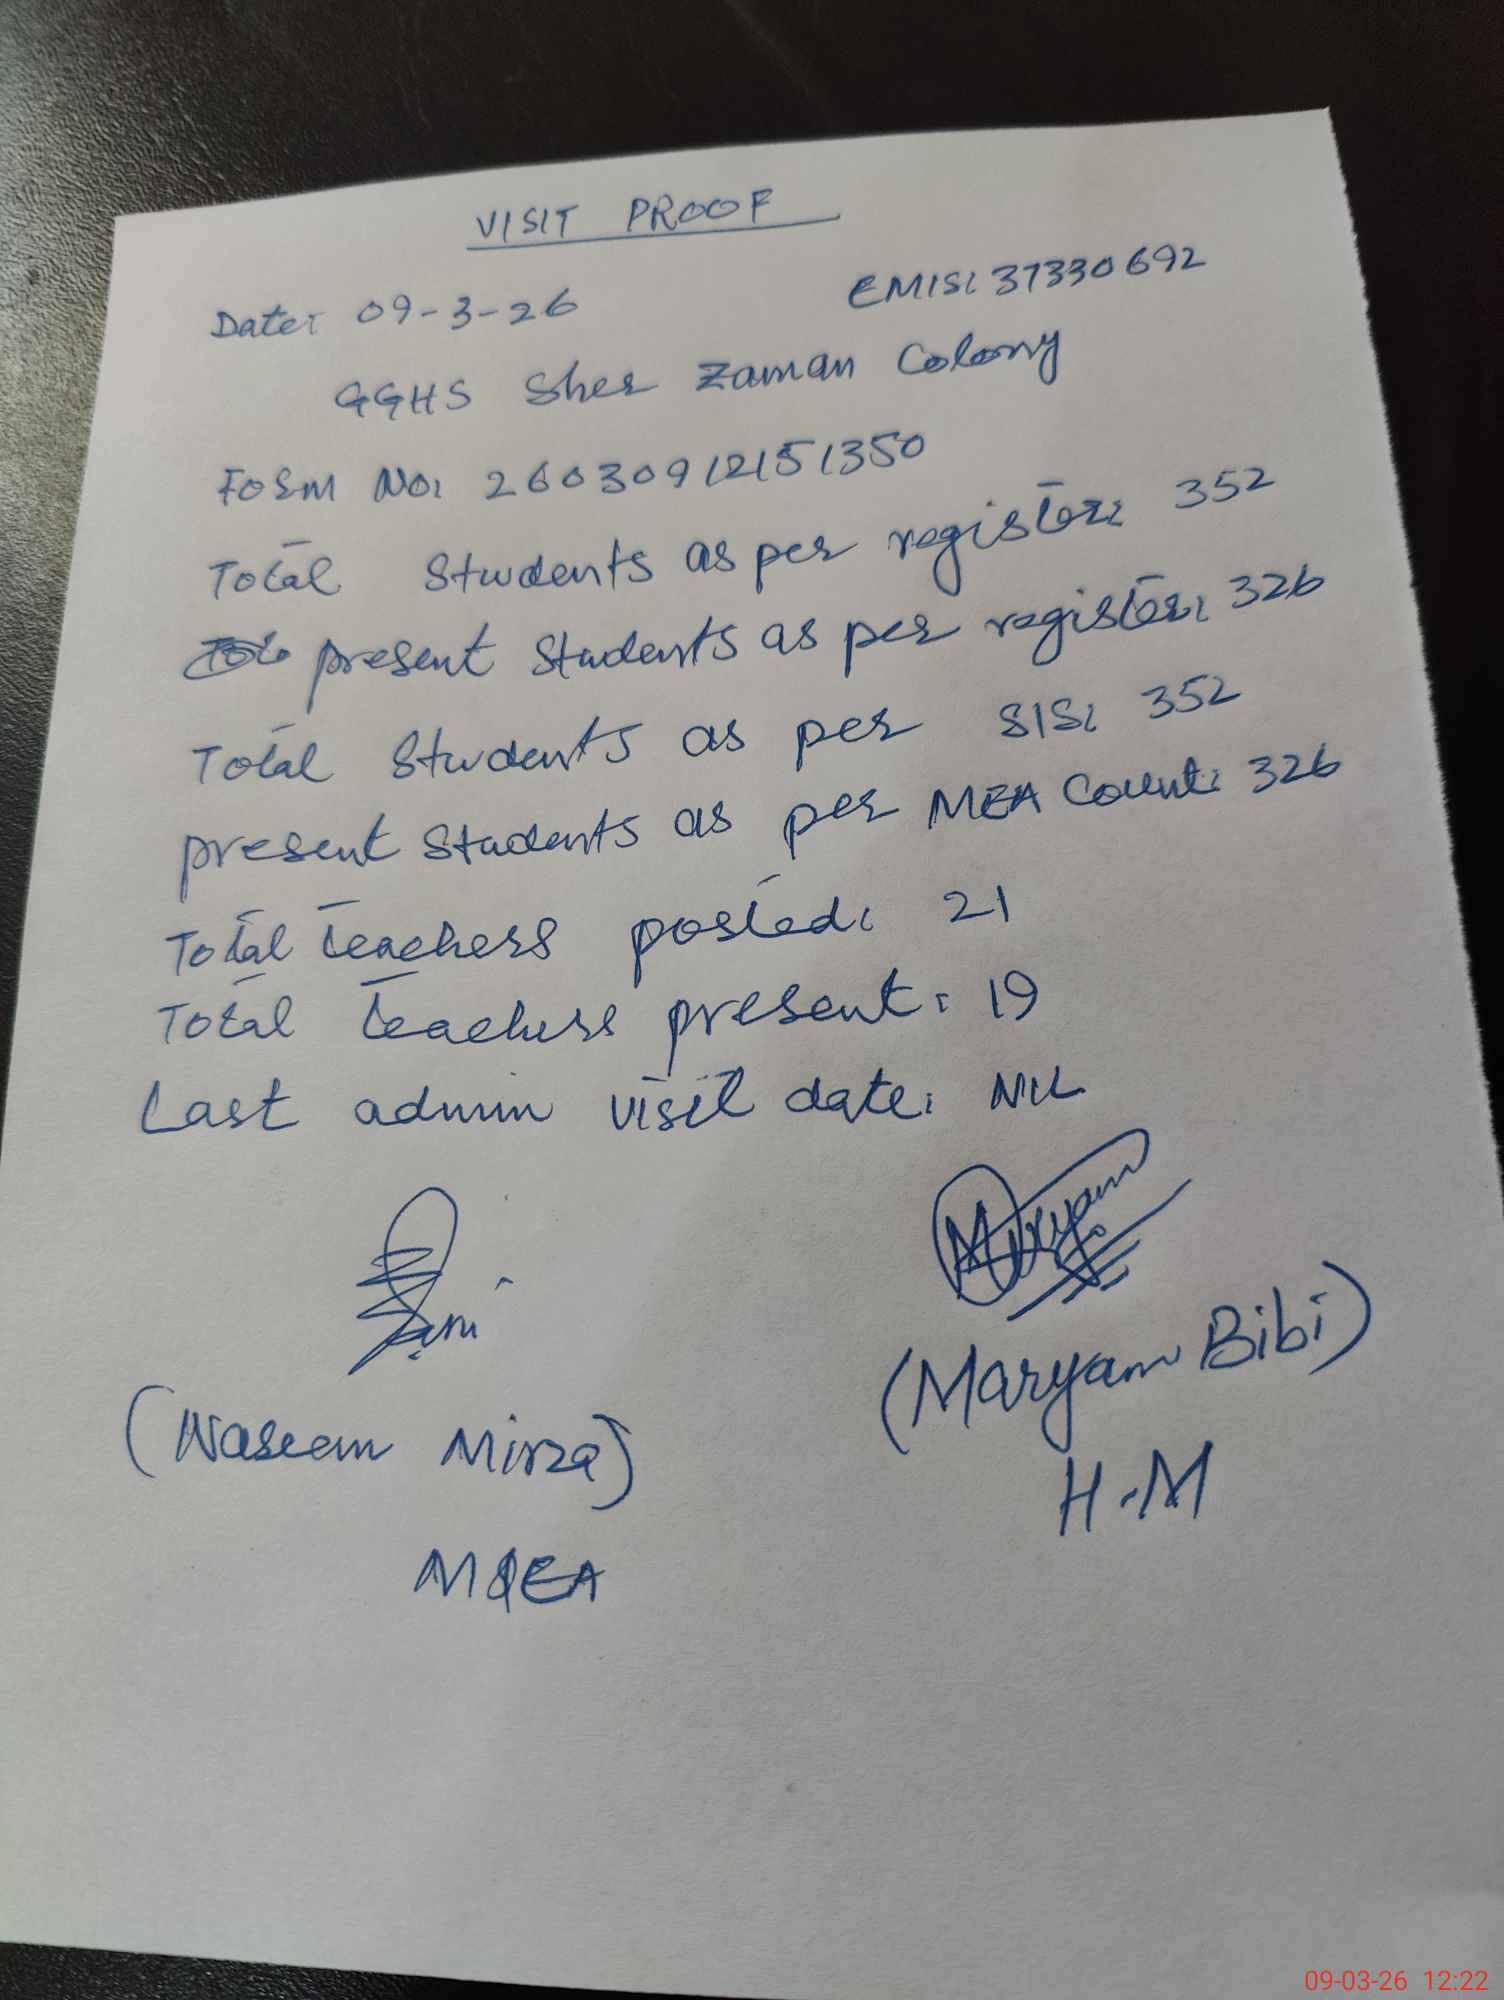 VISIT PROOF
Date: 09-3-26 EMIS: 37330692
GGHS Sher Zaman Colony
Form No: 26030912151350
Total Students as per register: 352
present students as per register: 326
Total Students as per SIS: 352
present students as per MEA Count: 326
Total teachers posted: 21
Total teachers present: 19
Last admin visit date: NIL
Maryam
(Naseem Mirza) (Maryam Bibi)
MEA H.M
09-03-26 12:22